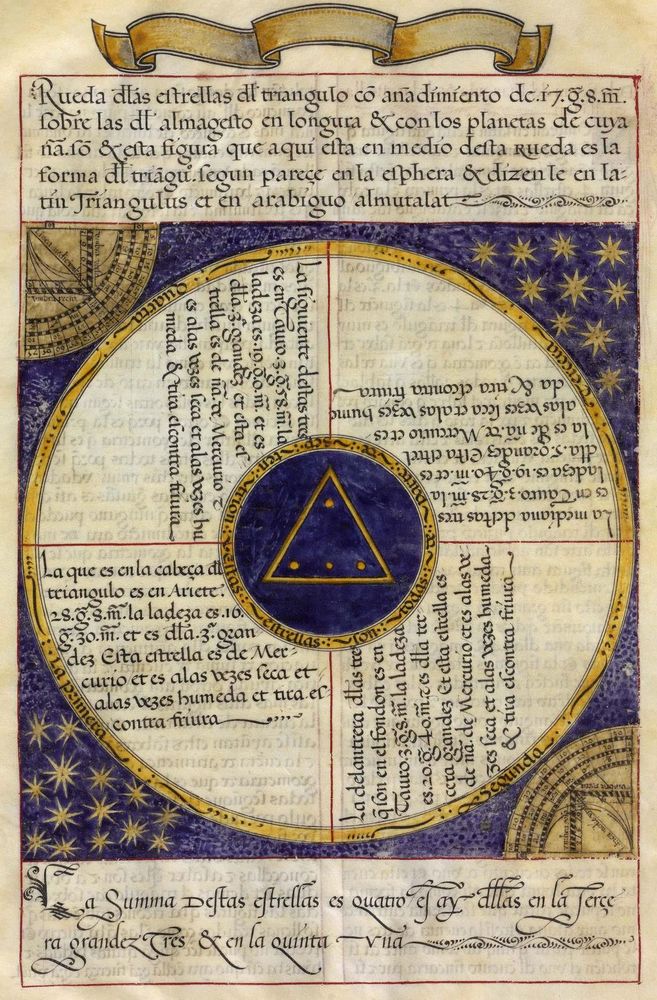 Rueda dl̃as estrellas dl̃ triangulo cõ anãdimiento de .17. g̃. 8. m̃.
sobre las dl̃ almagesto en longura & con los planetas de cuya
nã. sõ & esta figura que aqui esta en medio desta rueda es la
forma dl̃ triãgu. segun pareçe en la esphera & dizen le en la-
tin Triangulus et en arabiguo almutalat
La primera
La que es en la cabeça dl̃
triangulo es en Ariete.
28. g̃. 8. m̃. la ladeza es .16.
g̃. 30. m̃. et es dl̃a .3ª. gran
dez Esta estrella es de Mer-
curio et es alas vezes seca et
alas vezes humeda et tira es
contra friura
Segunda
La delantrera dl̃as tres
q̃ sõn en el fondon es en
Tauro .3. g̃. 8. m̃. la ladeza
es .20. g̃. 40. m̃. & es dl̃a ter
cera grandez Et esta estrella es
de nã. de Mercurio et es alas ve
zes seca et alas vezes humeda
& tira es contra friura
Tercera
La mediana destas tres
es en Tauro .3. g̃. 28. m̃. la
ladeza es .19. g̃. 40. m̃. et es
dl̃a .5. grandez Esta estrel
la es de nã. de Mercurio et es
alas vezes seca et alas vezes hume
da & tira es contra friura
Quarta
La siguiente destas tres
es en Tauro .3. g̃. 38. m̃. la
ladeza es .19. g̃. 0. m̃. et es
dl̃a .3ª. grandez et esta es
trella es de nã. de Mercurio &
es alas vezes seca et alas vezes hu
meda & tira es contra friura
estrellas son todas
La Summa Destas estrellas es quatro es ay dl̃las en la Terçe
ra grandez Tres & en la quinta Una